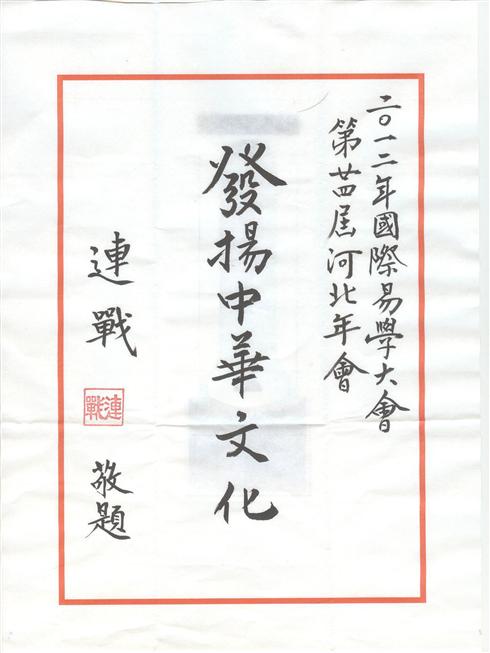 二〇一二年國際易學大會
第廿四屆河北年會
發揚中華文化
連戰
連戰
敬題